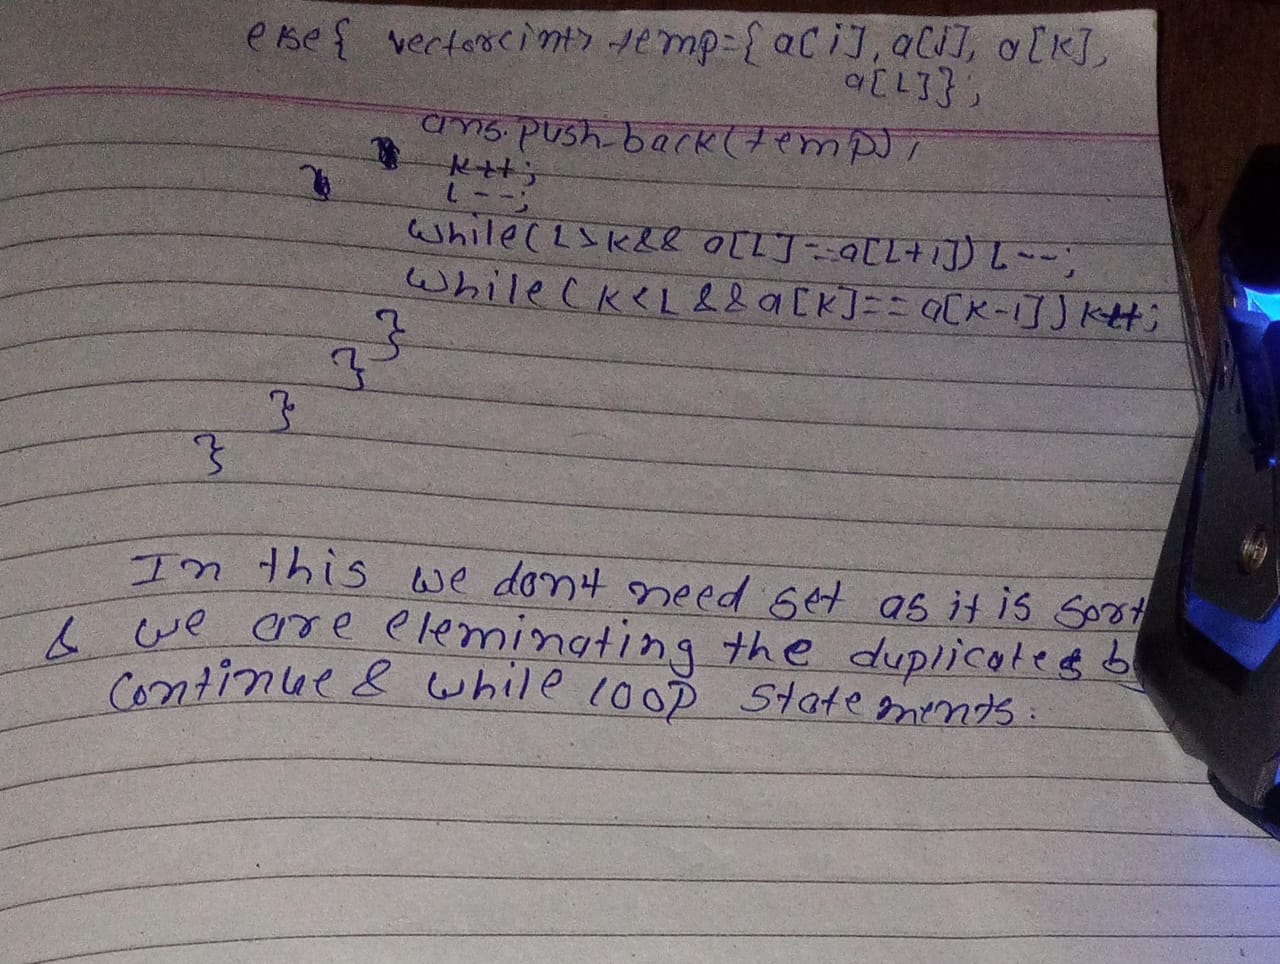 else{ vector<int> temp={a[i], a[j], a[k],
a[L]};
ans.push_back(temp);
k++;
L--;
while(L>k&& a[L]==a[L+1]) L--;
while(k<L&&a[k]==a[k-1]) k++;
}
}
}
}
In this we don't need set as it is sort
& we are eleminating the duplicates b
continue & while loop statements.